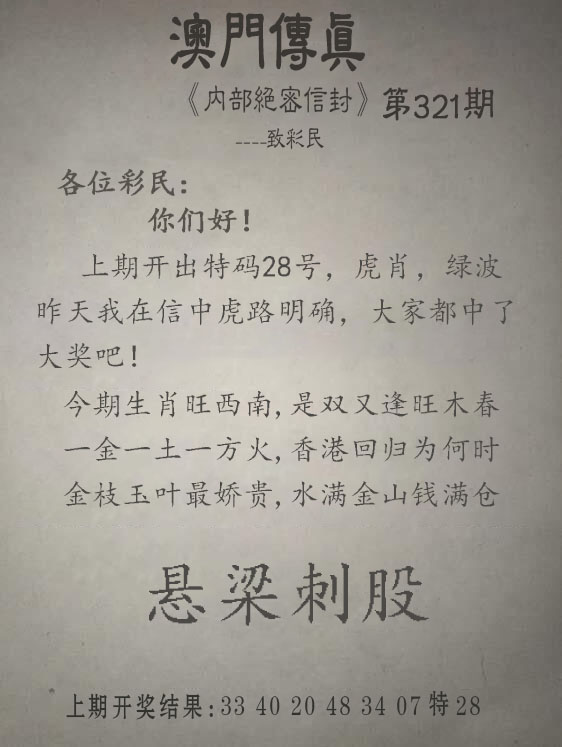 澳門傳眞
《内部絕密信封》第321期
----致彩民
各位彩民:
你们好!
上期开出特码28号，虎肖，绿波
昨天我在信中虎路明确，大家都中了
大奖吧!
今期生肖旺西南,是双又逢旺木春
一金一土一方火,香港回归为何时
金枝玉叶最娇贵,水满金山钱满仓
悬梁刺股
上期开奖结果:33 40 20 48 34 07 特 28